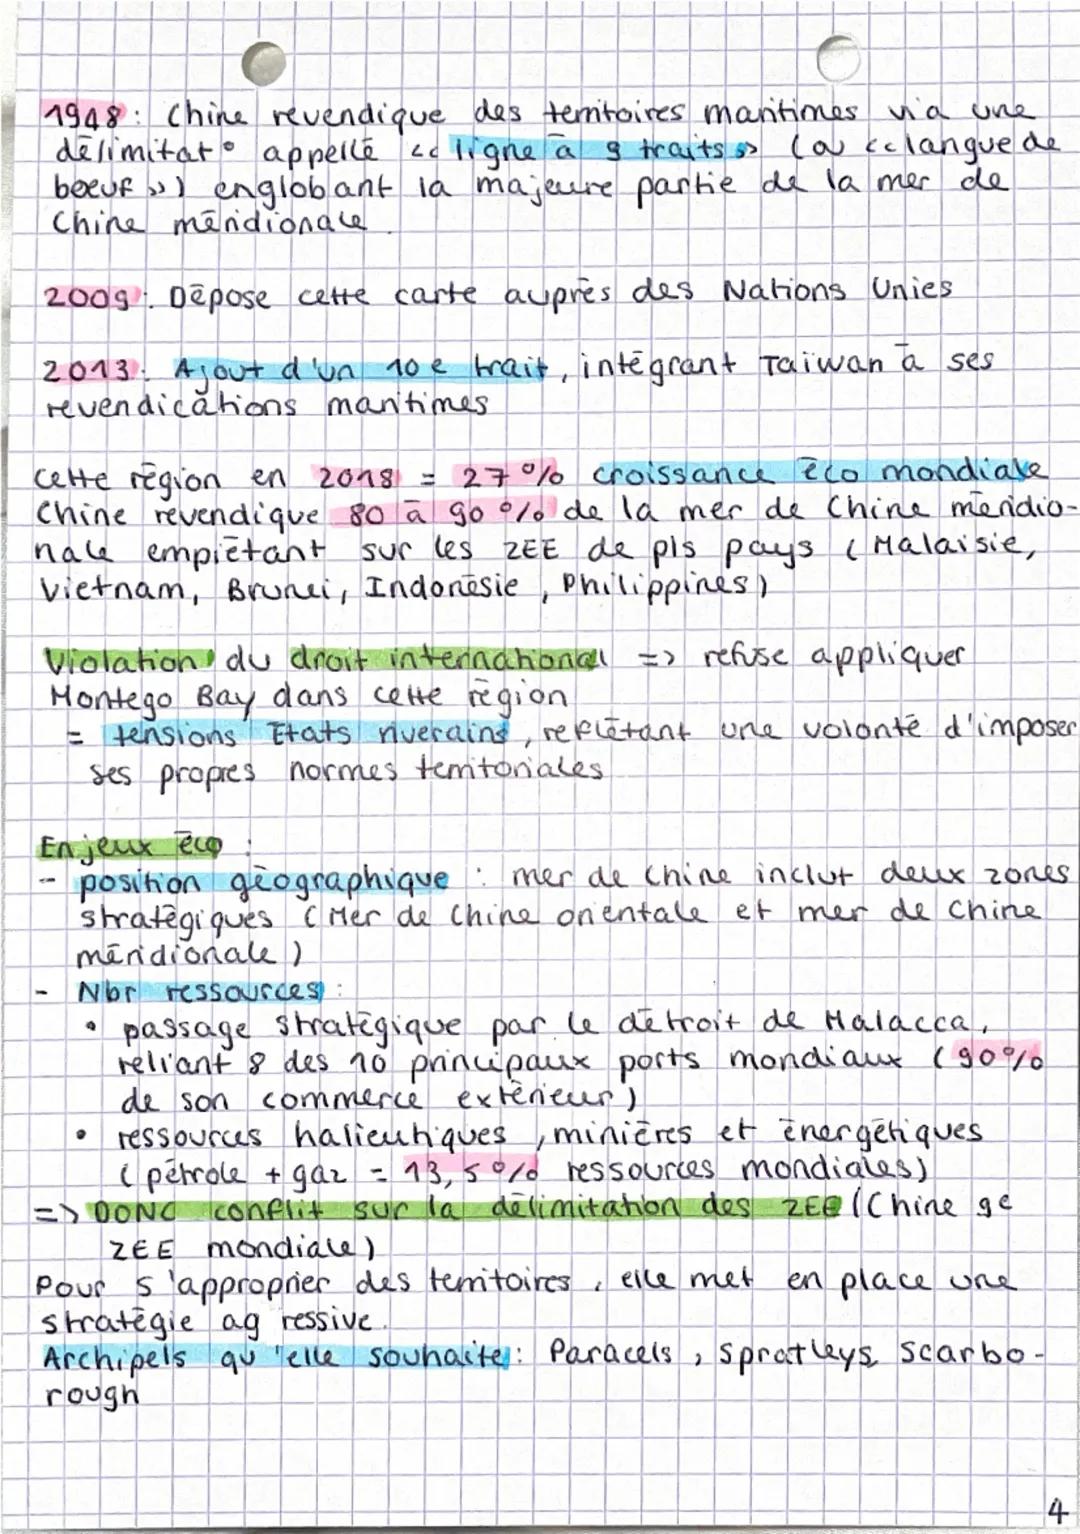 1948 : Chine revendique des territoires maritimes via une
délimitat° appellé << ligne à 9 traits >> (ou << langue de
boeuf >>) englobant la majeure partie de la mer de
Chine méridionale.
2009 : Dépose cette carte auprès des Nations Unies
2013 : Ajout d'un 10e trait, intégrant Taiwan à ses
revendications maritimes
Cette région en 2018 = 27% croissance éco mondiale
Chine revendique 80 à 90% de la mer de Chine méridio-
nale empiétant sur les ZEE de pls pays (Malaisie,
Vietnam, Brunei, Indonésie, Philippines)
Violation du droit international => refuse appliquer
Montego Bay dans cette région
= tensions Etats riverains, reflétant une volonté d'imposer
ses propres normes territoriales
Enjeux éco :
- position géographique : mer de chine inclut deux zones
stratégiques (Mer de Chine orientale et mer de Chine
méridionale)
- Nbr ressources :
• passage stratégique par le détroit de Malacca,
reliant 8 des 10 principaux ports mondiaux (90%
de son commerce extérieur)
• ressources halieutiques, minières et énergétiques
(pétrole + gaz = 13,5% ressources mondiales)
=> DONC conflit sur la délimitation des ZEE (Chine 9e
ZEE mondiale)
Pour s'approprier des territoires, elle met en place une
stratégie agressive.
Archipels qu'elle souhaite : Paracels, Spratleys, Scarbo-
rough
4